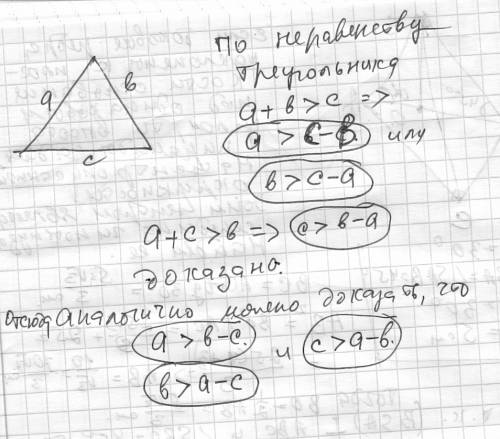 a
в
c
По неравенству
треугольника
a + в > c =>
a > c - в. или
в > c - a
a + c > в => c > в - a
доказано.
Отсюда Аналогично можно доказать, что
a > в - c. и c > a - в.
в > a - c